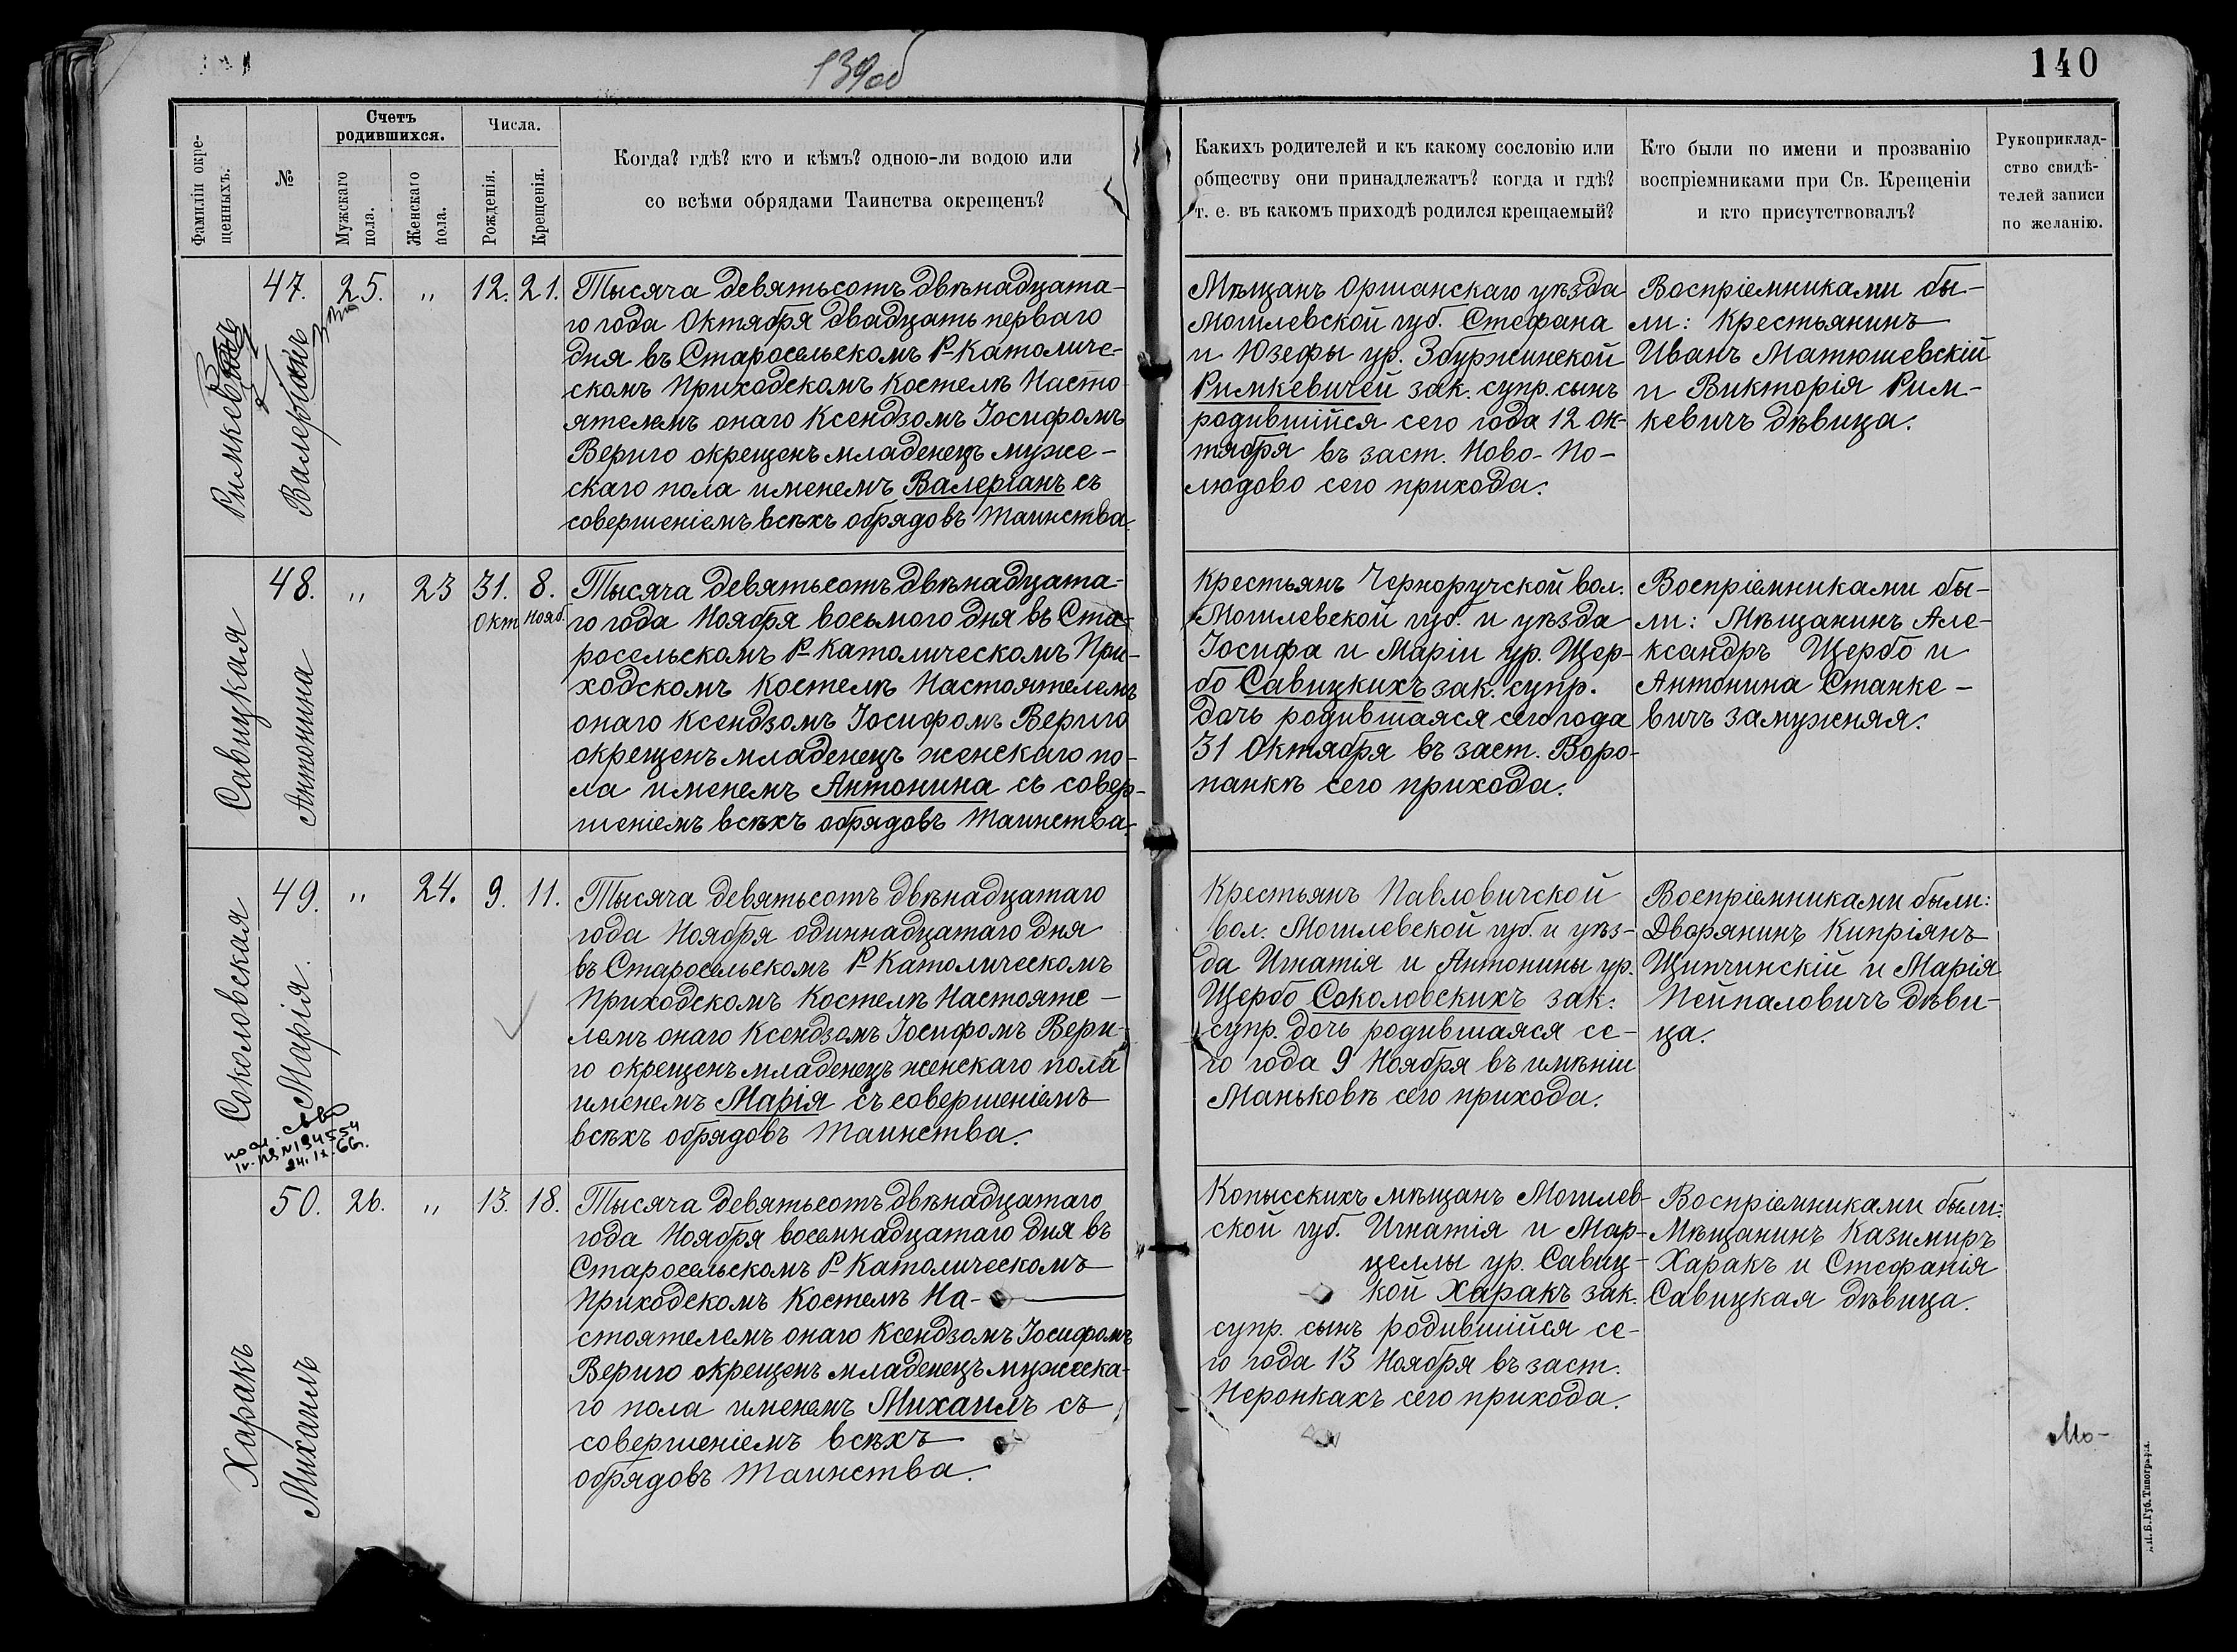 139об
140
Фамиліи окре-
щенныхъ.
№
Счетъ
родившихся.
Мужскаго
пола.
Женскаго
пола.
Числа.
Рожденія.
Крещенія.
Когда? гдѣ? кто и кѣмъ? одною-ли водою или
со всѣми обрядами Таинства окрещенъ?
Какихъ родителей и къ какому сословію или
обществу они принадлежатъ? когда и гдѣ?
т. е. въ какомъ приходѣ родился крещаемый?
Кто были по имени и прозванію
воспріемниками при Св. Крещеніи
и кто присутствовалъ?
Рукоприклад-
ство свидѣ-
телей записи
по желанію.
Римкевичъ
Валеріанъ
47. 25. " 12. 21.
Тысяча девятьсотъ двѣнадцата-
го года Октября двадцать перваго
дня въ Старосельскомъ Р-Католиче-
скомъ Приходскомъ Костелѣ Насто-
ятелемъ онаго Ксендзомъ Іосифомъ
Вериго окрещенъ младенецъ муже-
скаго пола именемъ Валеріанъ съ
совершеніемъ всѣхъ обрядовъ Таинства.
Мѣщанъ Оршанскаго уѣзда
Могилевской губ. Стефана
и Юзефы ур. Збуржинской
Римкевичей зак. супр. сынъ
родившійся сего года 12 Ок-
тября въ заст. Ново-По-
людово сего прихода.
Воспріемниками бы-
ли: Крестьянинъ
Иванъ Матюшевскій
и Викторія Рим-
кевичъ дѣвица.
Савицкая
Антонина
48. " 23 31. 8.
Окт Нояб.
Тысяча девятьсотъ двѣнадцата-
го года Ноября восьмого дня въ Ста-
росельскомъ Р-Католическомъ При-
ходскомъ Костелѣ Настоятелемъ
онаго Ксендзомъ Іосифомъ Вериго
окрещенъ младенецъ женскаго по-
ла именемъ Антонина съ совер-
шеніемъ всѣхъ обрядовъ Таинства.
Крестьянъ Черноручской вол.
Могилевской губ. и уѣзда
Іосифа и Маріи ур. Щер-
бо Савицкихъ зак. супр.
дочь родившаяся сего года
31 Октября въ заст. Воро-
панкѣ сего прихода.
Воспріемниками бы-
ли: Мѣщанинъ Але-
ксандръ Щербо и
Антонина Станке-
вичъ замужняя.
Соколовская
Марія.
49. " 24. 9. 11.
Тысяча девятьсотъ двѣнадцатаго
года Ноября одиннадцатаго дня
въ Старосельскомъ Р-Католическомъ
Приходскомъ Костелѣ Настояте-
лемъ онаго Ксендзомъ Іосифомъ Вери-
го окрещенъ младенецъ женскаго пола
именемъ Марія съ совершеніемъ
всѣхъ обрядовъ Таинства.
Крестьянъ Павловичской
вол. Могилевской губ. и уѣз-
да Игнатія и Антонины ур.
Щербо Соколовскихъ зак.
супр. дочь родившаяся се-
го года 9 Ноября въ имѣніи
Маньковѣ сего прихода.
Воспріемниками были:
Дворянинъ Кипріянъ
Щипчинскій и Марія
Пейпаловичъ дѣви-
ца.
24.IX.66г.
Харакъ
Михаилъ
50. 26. " 13. 18.
Тысяча девятьсотъ двѣнадцатаго
года Ноября восемнадцатаго дня въ
Старосельскомъ Р-Католическомъ
Приходскомъ Костелѣ На-
стоятелемъ онаго Ксендзомъ Іосифомъ
Вериго окрещенъ младенецъ мужеска-
го пола именемъ Михаилъ съ
совершеніемъ всѣхъ
обрядовъ Таинства.
Копысскихъ мѣщанъ Могилев-
ской губ. Игнатія и Мар-
целлы ур. Савиц-
кой Харакъ зак.
супр. сынъ родившійся се-
го года 13 Ноября въ заст.
Неронкахъ сего прихода.
Воспріемниками были:
Мѣщанинъ Казимиръ
Харакъ и Стефанія
Савицкая дѣвица.
Мо-
Губ. Типографія.